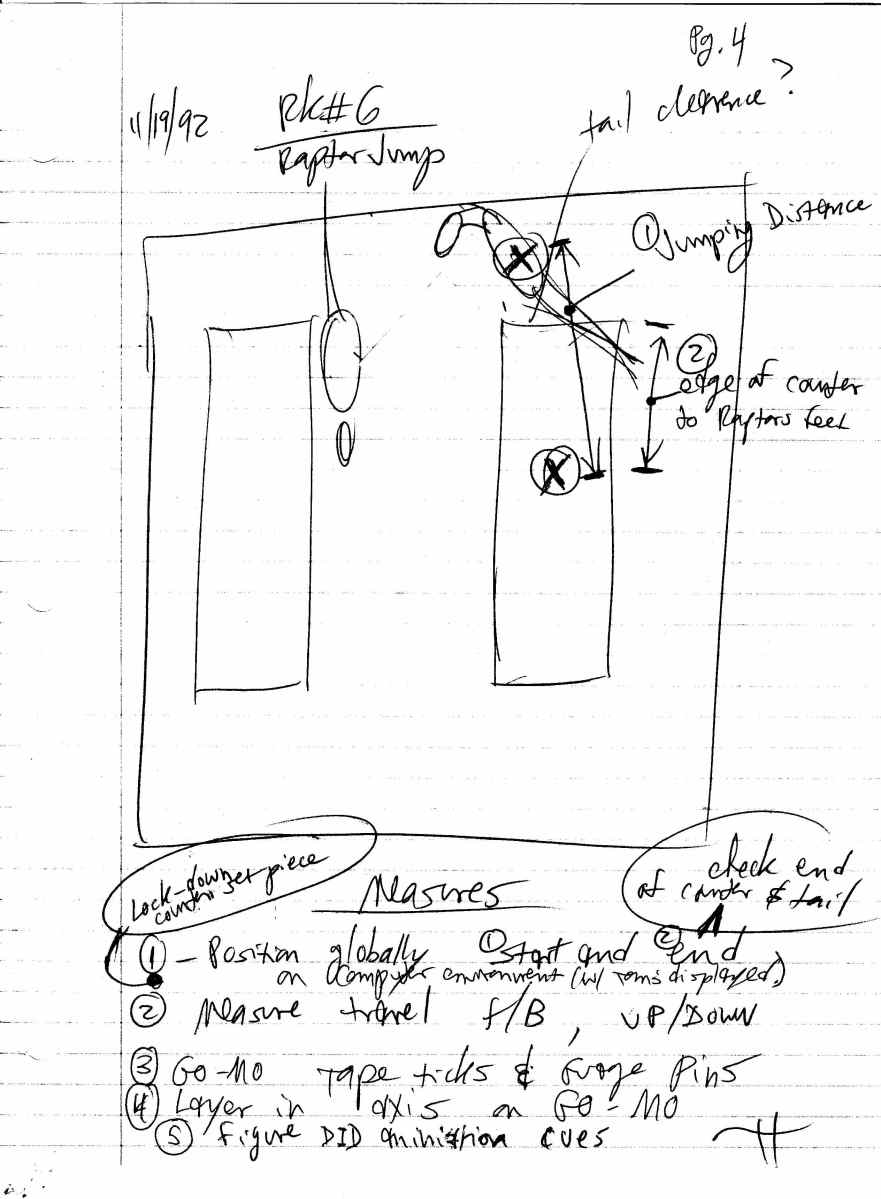 Pg. 4
11/19/92
RK#6
Raptor Jump
tail clearence?
① Jumping Distance
X
② edge of counter
to Raptors feet
X
Lock-down
counter set piece
Measures
check end
of counter & tail
① - Position globally ① start and ② end
on computer environment (w/ displayed)
② Measure travel f/B, UP/DOWN
③ GO-MO tape ticks & Gauge Pins
④ Layer in axis on GO-MO
⑤ figure DID animation cues